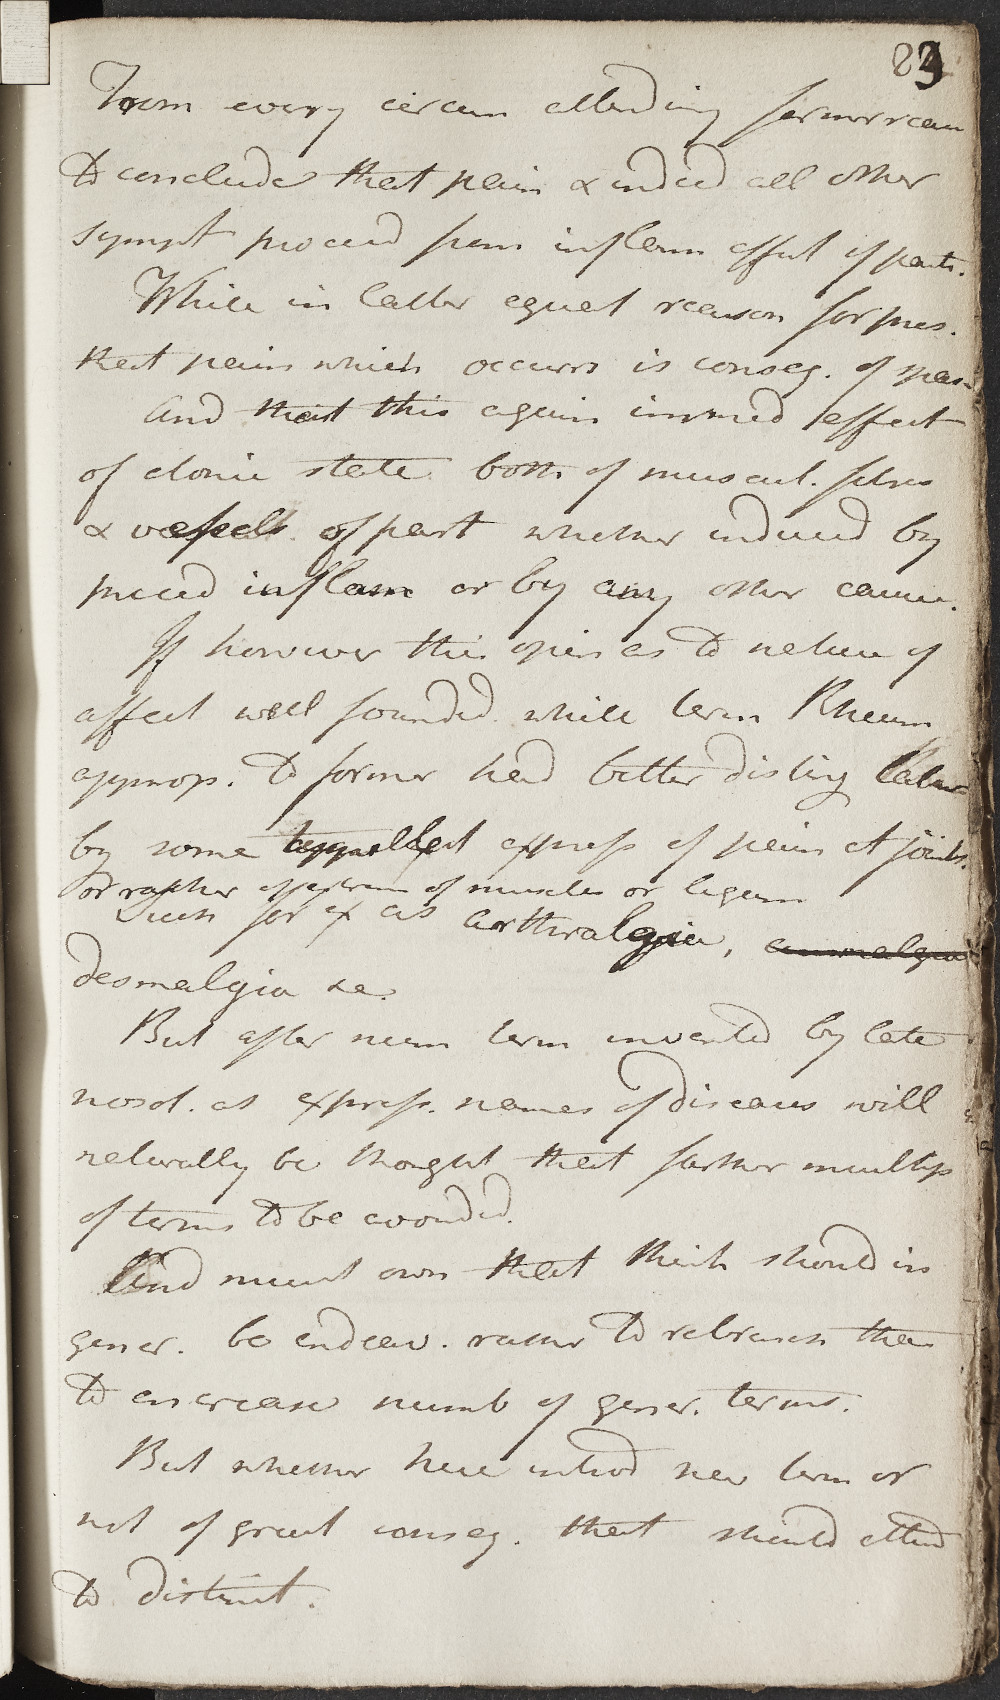 83
From every circum attending former reason
to conclude that pain & indeed all other
sympt proceed from inflam affect of parts.
While in latter equal reason for pres.
that pain which occurrs is conseq. of spas
And that this again immed effect
of clonic state both of muscul. fibres
& vessels of part whether induced by
preced inflam or by any other cause.
If however this opin as to nature of
affect well founded while term Rheum
approp. to former had better disting latter
by some express of pain at joints.
or rather of muscles or ligam
Such for ex as arthralgia,
desmalgia &c.
But after num term invented by late
nosol. as express. names of diseases will
naturally be thought that farther multip
of terms to be avoided.
And must own that think should in
gener. be endeav. rather to retrench than
to encrease numb of gener. terms.
But whether here introd new term or
not of great conseq. that should attend
to distinct.